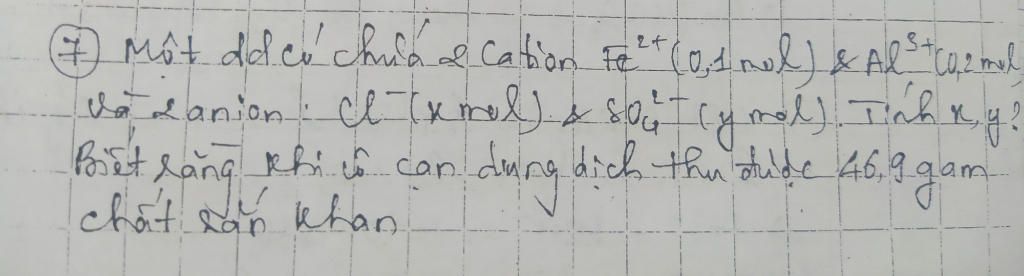 ⑦ Một dd có chứa 2 Cation Fe²⁺ (0,1 mol) & Al³⁺ (0,2 mol)
và 2 anion: Cl⁻ (x mol) & SO₄²⁻ (y mol). Tính x, y?
Biết rằng khi cô cạn dung dịch thu được 46,9 gam
chất rắn khan